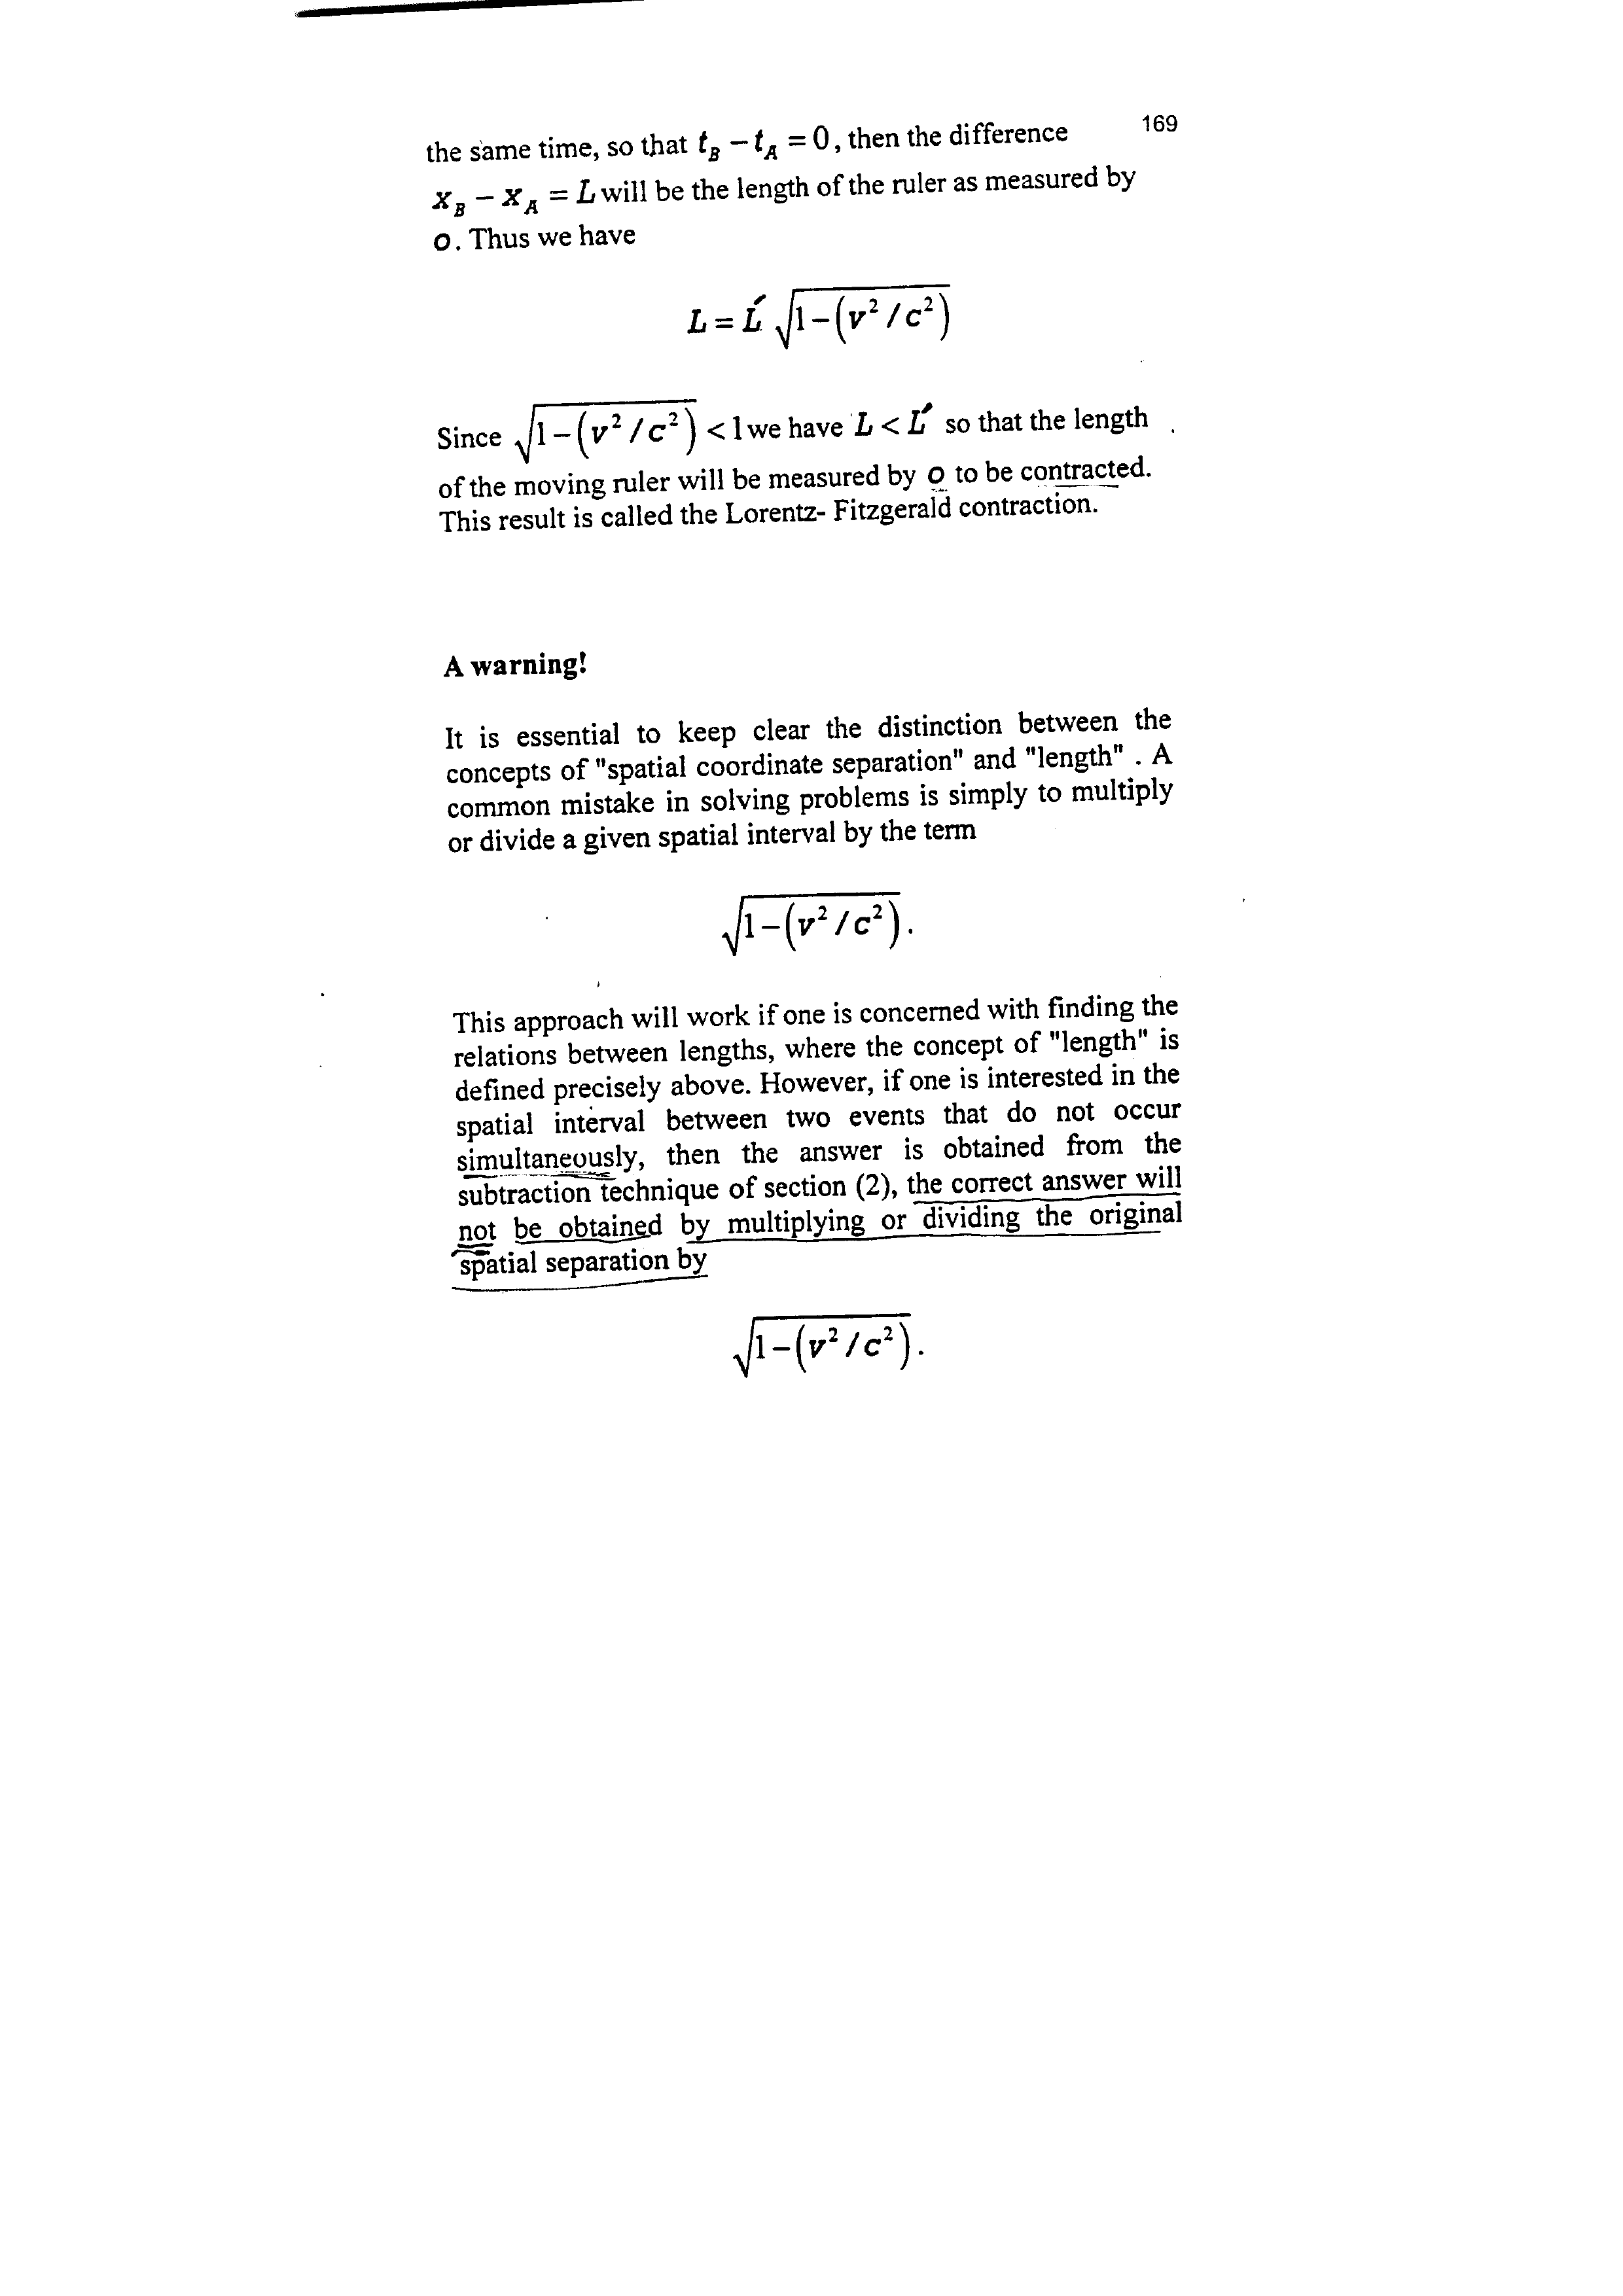 169
the same time, so that t_B − t_A = 0, then the difference
x_B − x_A = L will be the length of the ruler as measured by
o. Thus we have
L = L′ √(1−(v²/c²))
Since √(1−(v²/c²)) < 1 we have L < L′ so that the length
of the moving ruler will be measured by o to be contracted.
This result is called the Lorentz- Fitzgerald contraction.
A warning!
It is essential to keep clear the distinction between the
concepts of "spatial coordinate separation" and "length" . A
common mistake in solving problems is simply to multiply
or divide a given spatial interval by the term
√(1−(v²/c²)).
This approach will work if one is concerned with finding the
relations between lengths, where the concept of "length" is
defined precisely above. However, if one is interested in the
spatial interval between two events that do not occur
simultaneously, then the answer is obtained from the
subtraction technique of section (2), the correct answer will
not be obtained by multiplying or dividing the original
spatial separation by
√(1−(v²/c²)).